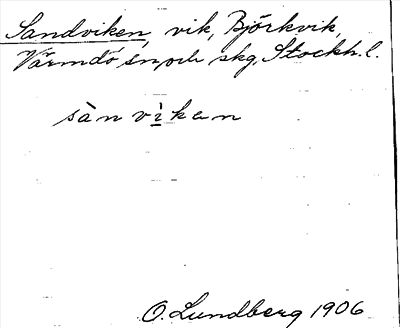 Sandviken, vik, Björkvik,
Värmdö sn, och skg, Stockh. l.
sàn vì ken
O. Lundberg 1906